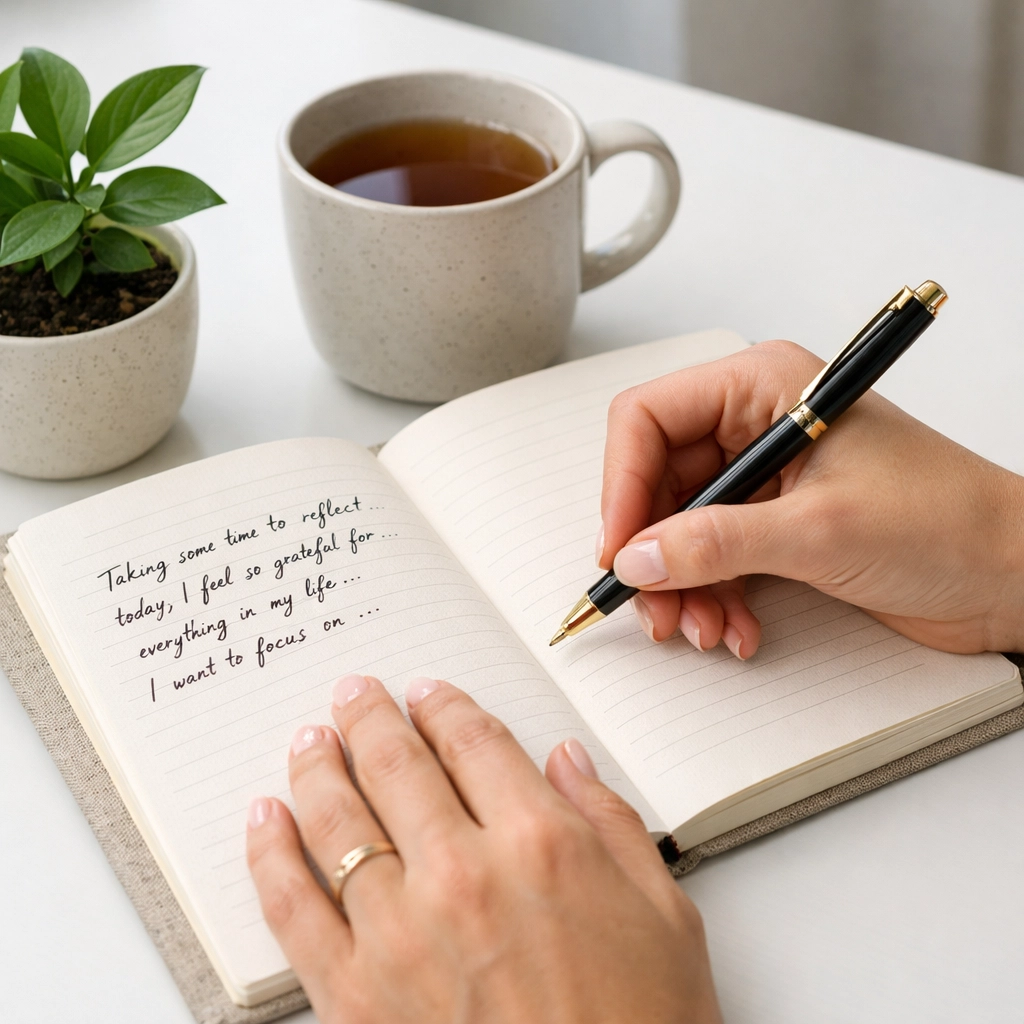 Taking some time to reflect ...
today, I feel so grateful for ...
everything in my life ...
I want to focus on ...